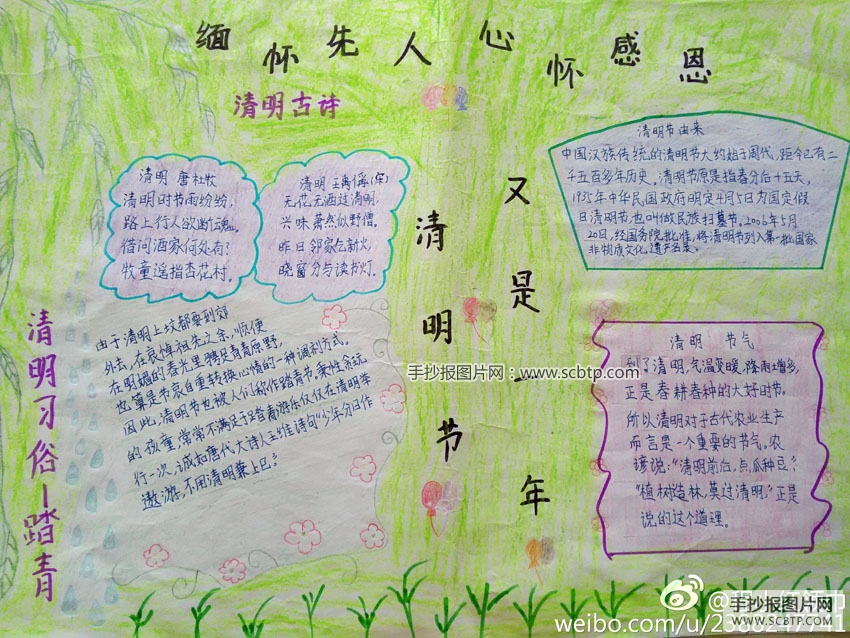 缅怀先人 心怀感恩
清明古诗
清明 唐杜牧
清明时节雨纷纷,
路上行人欲断魂。
借问酒家何处有?
牧童遥指杏花村。
清明 王禹偁(宋)
无花无酒过清明,
兴味萧然似野僧。
昨日邻家乞新火,
晓窗分与读书灯。
又是一年
清明节
清明节由来
中国汉族传统的清明节大约始于周代,距今已有二
千五百多年历史。清明节原是指春分后十五天,
1935年中华民国政府明定4月5日为国定假
日清明节,也叫做民族扫墓节。2006年5月
20日,经国务院批准,将清明节列入第一批国家
非物质文化遗产名录。
清明习俗-踏青
由于清明上坟都要到郊
外去,在哀悼祖先之余,顺便
在明媚的春光里骋足青青原野,
也算是节哀自重转换心情的一种调剂方式。
因此,清明节也被人们称作踏青节,秉性贪玩
的孩童,常常不满足于踏青游乐仅仅在清明举
行一次,诚如唐代大诗人王维诗句"少年分日作
遨游,不用清明兼上巳。"
清明 节气
到了清明,气温变暖,降雨增多,
正是春耕春种的大好时节。
所以清明对于古代农业生产
而言是一个重要的节气。农
谚说:"清明前后,点瓜种豆"、
"植树造林,莫过清明。"正是
说的这个道理。
手抄报图片网:www.scbtp.com
手抄报图片网
WWW.SCBTP.COM